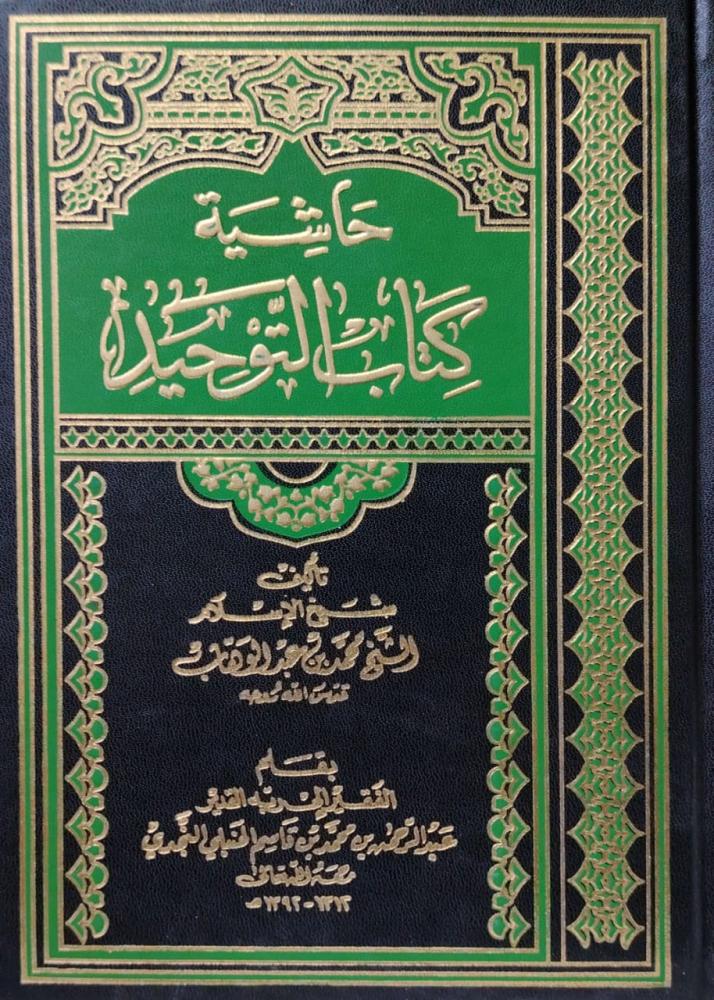 حَاشِيَة
كِتَابُ التَّوْحِيدِ
تأليف
شيخ الإسلام
الشيخ محمد بن عبد الوهاب
قدس الله روحه
بقلم
الفقير إلى ربه القدير
عبد الرحمن بن محمد بن قاسم الحنبلي النجدي
رحمه الله تعالى
١٣١٢ - ١٣٩٢ هـ